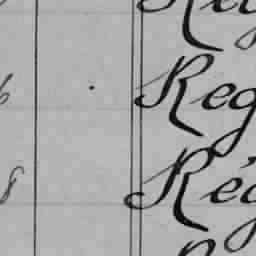 Reg
6 Reg
8 Rég